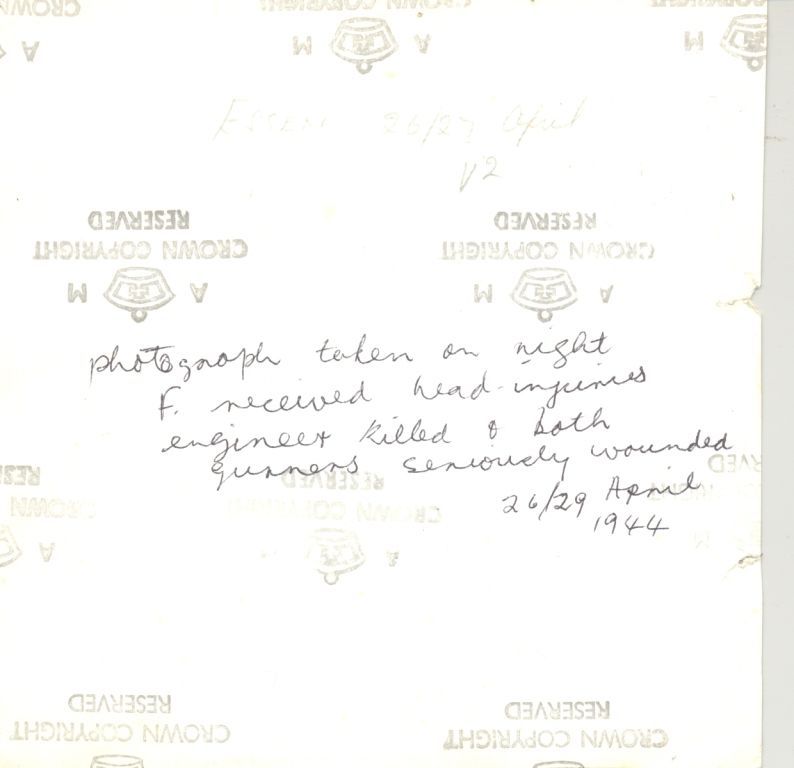 CROWN COPYRIGHT
CROWN COPYRIGHT
CROWN COPYRIGHT
A M
A M
M
ESSEN 26/27 April
V2
CROWN COPYRIGHT
RESERVED
A M
CROWN COPYRIGHT
RESERVED
A M
photograph taken on night
F. received head injuries
engineer killed & both
gunners seriously wounded
26/29 April
1944
CROWN
RESERVED
A
CROWN COPYRIGHT
RESERVED
A
M
CROWN COPYRIGHT
RESERVED
CROWN COPYRIGHT
RESERVED